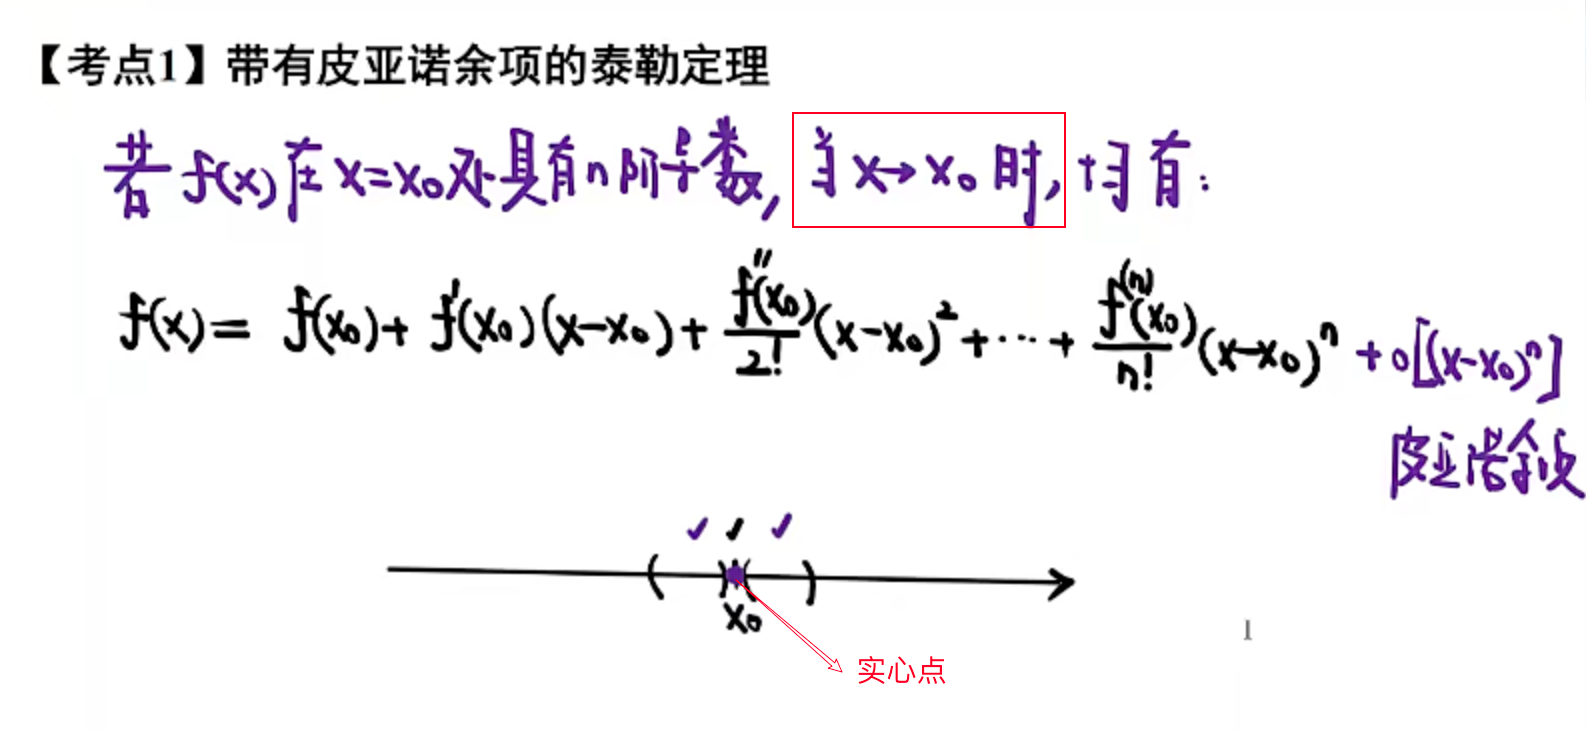 【考点1】带有皮亚诺余项的泰勒定理
若 f(x) 在 x=x₀ 处具有 n 阶导数, 当 x→x₀ 时, 均有:
f(x) = f(x₀) + f'(x₀)(x-x₀) + f''(x₀)/2! (x-x₀)² + ⋯ + f⁽ⁿ⁾(x₀)/n! (x-x₀)ⁿ + o[(x-x₀)ⁿ]
皮亚诺余项
x₀
1
实心点